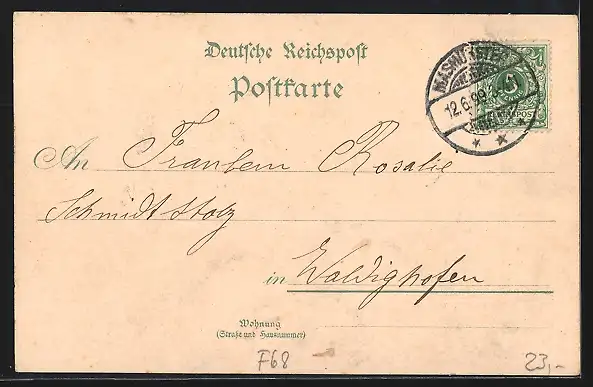 Deutsche Reichspost
Postkarte
MASMÜNSTER
12.6.99
REICHSPOST
An Fraulein Rosalie
Schmidt Stolz
in Waldighofen
Wohnung
(Straße und Hausnummer)
F68
23,-